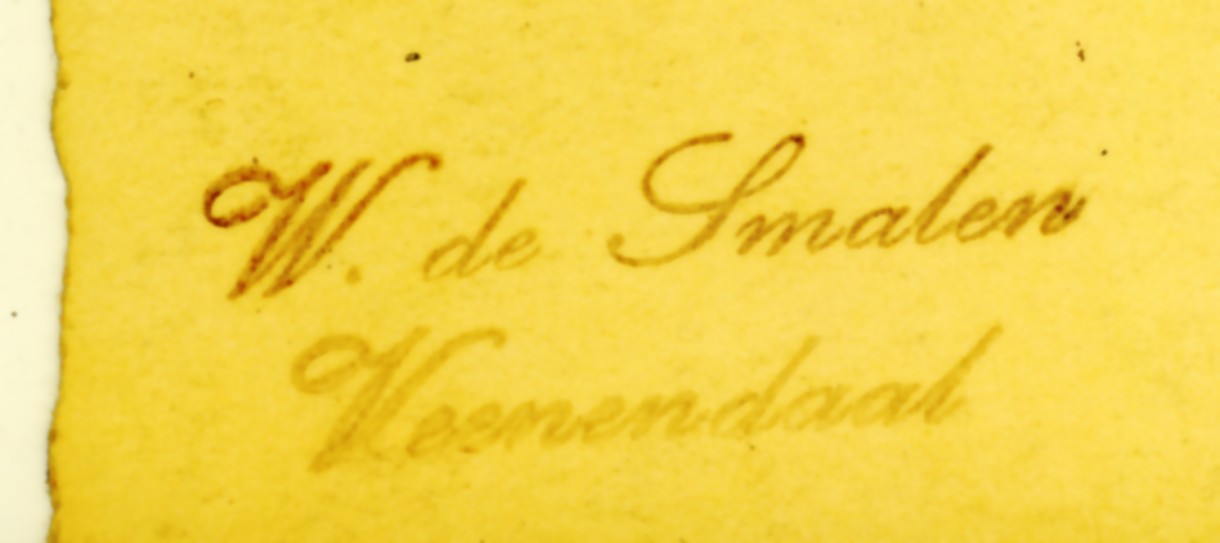 W. de Smalen
Veenendaal